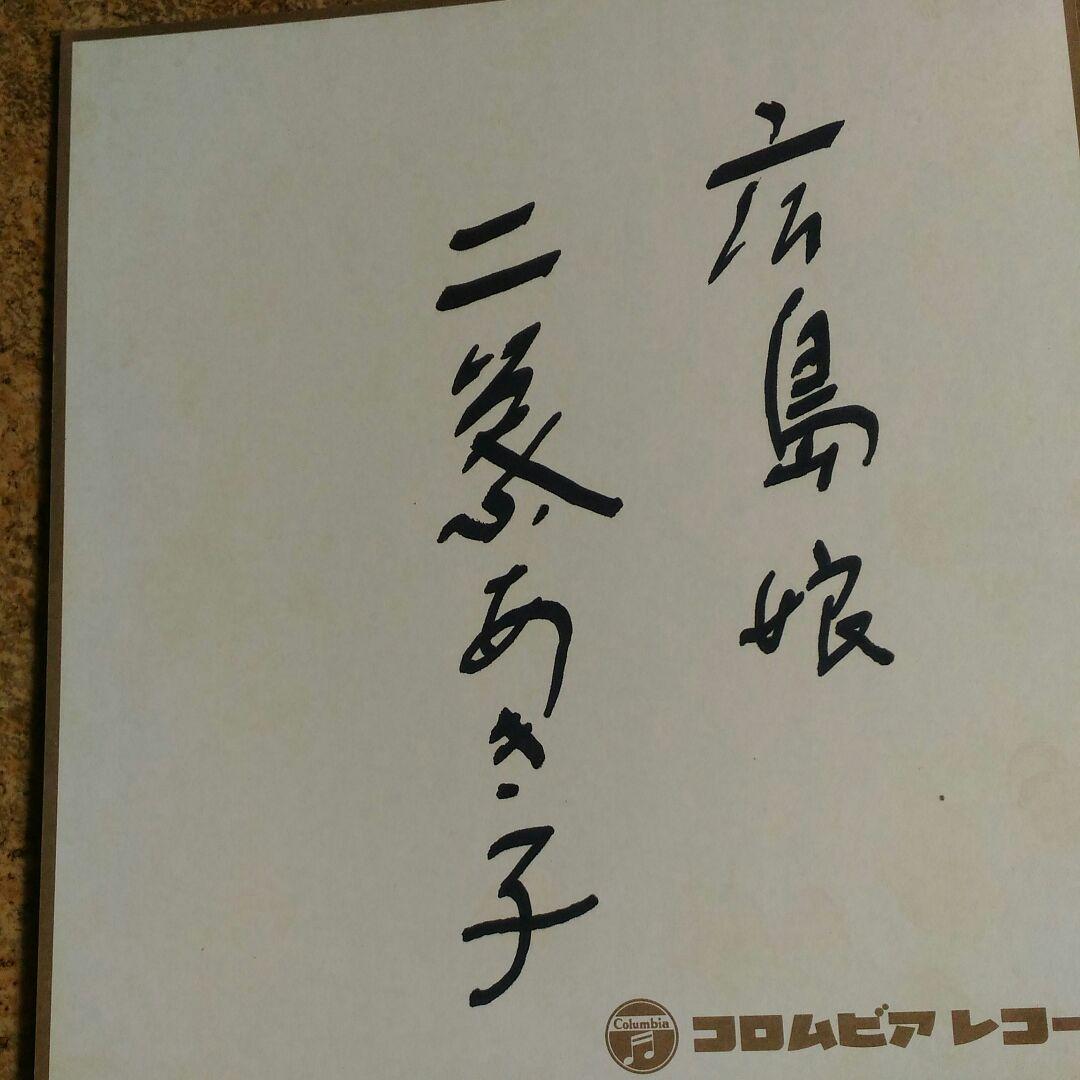 広島娘
二葉あき子
Columbia
コロムビアレコー